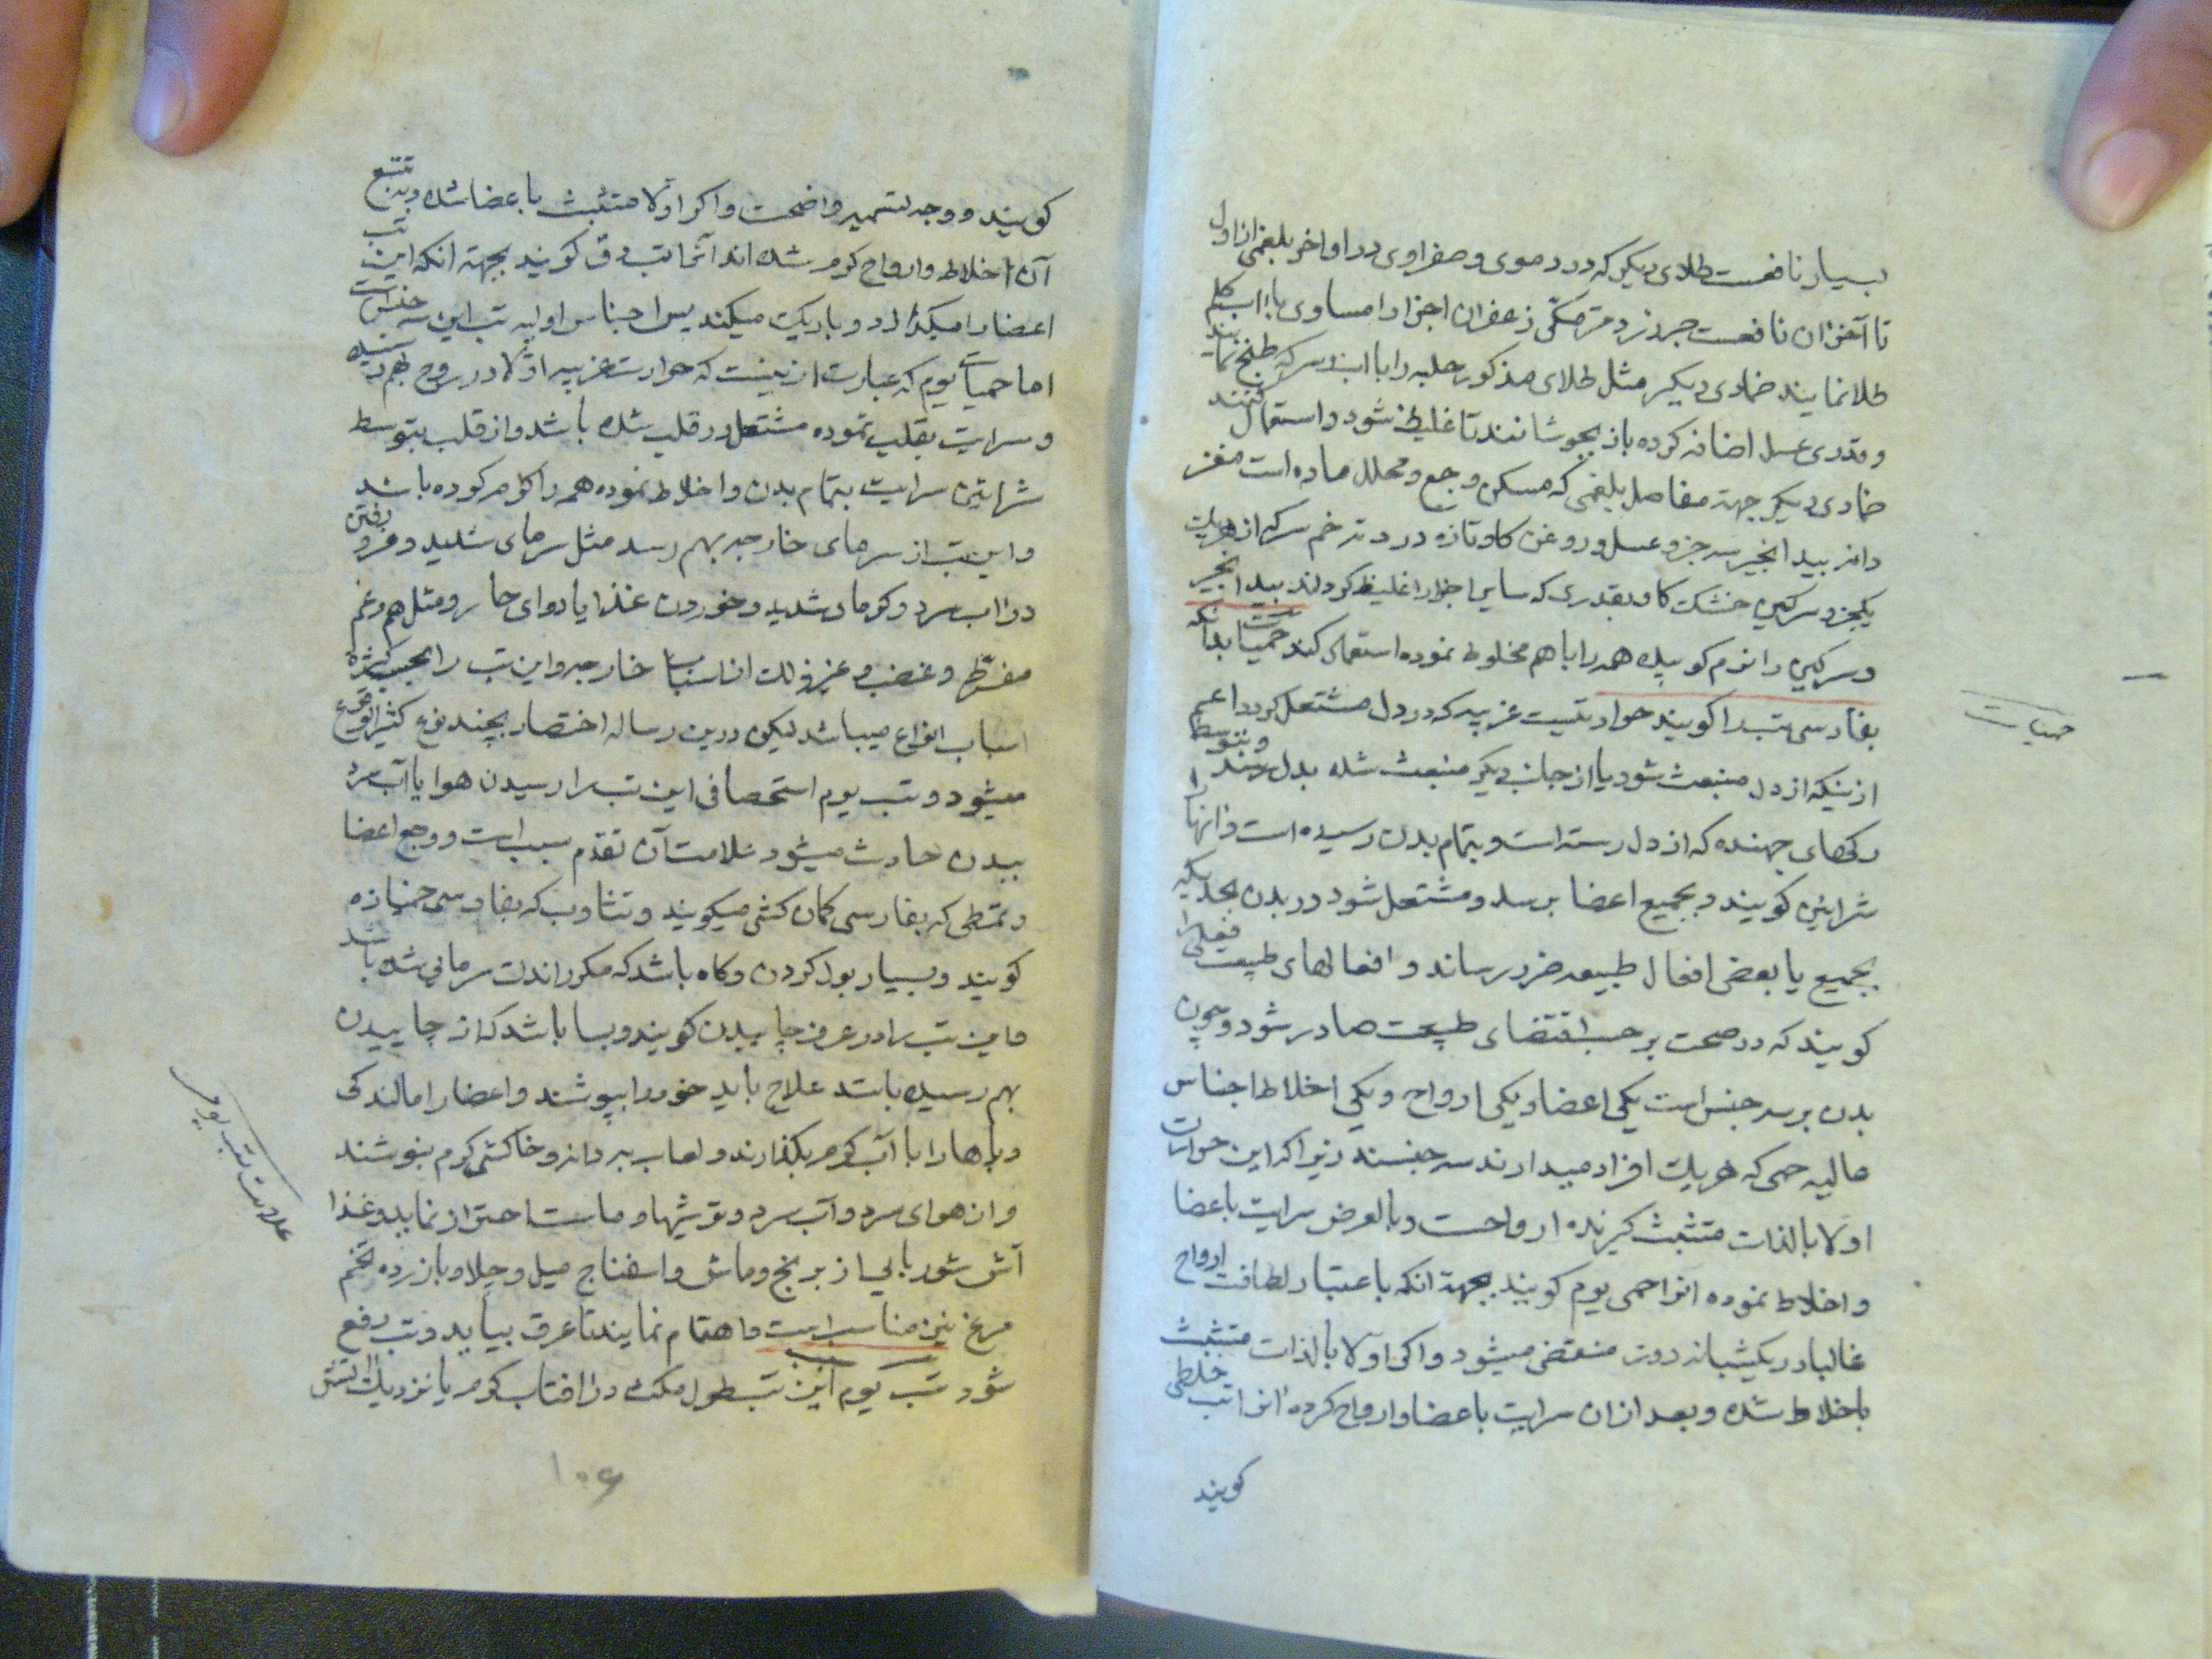 بسیار نافعست طلای دیکر که در دموی و صفراوی در اواخر بلغمی از اول
تا آخر ان نافعست جدوار زرد مر مکی زعفران اجزا را مساوی با اب کلم
طلا نمایند ضمادی دیکر مثل طلای مذکور حلبه را با اب و سرکه طبخ نمایند
و قدری عسل اضافه کرده باز بجوشانند تا غلیظ شود و استعمال کنند
ضمادی دیکر جهة مفاصل بلغمی که مسکن وجع و محلل ماده است مغز
دانه بید انجیر سه جزو عسل و روغن کاو تازه درد ته خم سرکه از هریک
یکجزو سرکین خشک کاو بقدری که سایر اجزا را غلیظ کرداند بید انجیر
و سرکین را نرم کوبیده همه را با هم مخلوط نموده استعمال کنند حمیات بدانکه
بفارسی تب را کویند حرارتیست غریبه که در دل مشتعل کردد اعم
ازینکه از دل منبعث شود یا از جای دیکر منبعث شده بدل رسد و بتوسط
رکهای جهنده که از دل رسته است و بتمام بدن رسیده است و انها را
شرائین کویند و بجمیع اعضا برسد و مشتعل شود در بدن بحدیکه
بجمیع یا بعض افعال طبیعه ضرر رساند و افعالهای طبیعت فعلی را
کویند که در صحت بر حسب اقتضای طبیعت صادر شود و چون
بدن بر سه جنس است یکی اعضا و یکی ارواح و یکی اخلاط اجناس
عالیه حمی که هریک افراد میدارند سه جنسند زیرا که این حرارت
اولا بالذات متشبث کیرنده ارواحست و بالعرض سرایت باعضا
و اخلاط نموده انرا حمی یوم کویند بجهة انکه باعتبار لطافت ارواح
غالبا در یکشبانه روز منقضی میشود و اکر اولا بالذات متشبث
باخلاط شده و بعد ازان سرایت باعضا و ارواح کرده انرا تب خلطی
کویند
حمیات
کویند و وجه تسمیه واضحست و اکر اولا متشبث باعضا شده و بتبع
آن اخلاط و ارواح کرم شده اند آنرا تب دق کویند بجهة انکه این تب
اعضا را میکدازد و باریک میکند پس اجناس اولیه تب این سه جنس است
اما حمیات یوم که عبارت ازینست که حرارت غریبه اولا در روح بهم رسیده
و سرایت بقلب نموده مشتعل در قلب شده باشد و از قلب بتوسط
شرائین سرایت بتمام بدن و اخلاط نموده همه را کرم کرده باشد
و این تب از سرمای خارجه بهم رسد مثل سرمای شدید و فرو رفتن
در اب سرد و کرمای شدید و خوردن غذا یا دوای حار و مثل هم و غم
مفرط و غضب و غیر ذلک از اسباب خارجه و این تب را بحسب کثرة
اسباب انواع میباشد لیکن درین رساله اختصار بچند نوع کثیر الوقوع
میشود و تب یوم استحصافی این تب را از رسیدن هوا یا آب سرد
ببدن حادث میشود علامت آن تقدم سبب است و وجع اعضا
و تمطی که بفارسی کمان کشی میکویند و تثاوب که بفارسی خمیازه
کویند و بسیار بول کردن و کاه باشد که مکرر اندک سرمائی شده باشد
و این تب را در عرف چاییدن کویند و بسا باشد که از چاییدن
بهم رسیده باشد علاج باید خود را بپوشند و اعضا را مالند کی
و پاها را با آب کرم بکذارند و لعاب به دانه و خاکشی کرم بنوشند
و از هوای سرد و آب سرد و ترشیها و ماست احتراز نماید و غذا
آش شوربائی از برنج و ماش و اسفناج میل و چلاو با زرده تخم
مرغ نیز مناسب است و اهتمام نمایند تا عرق بیاید و تب رفع
شود تب یوم این تب بطول مکث در افتاب کرم یا نزدیک اتش
علامت تب یوم
۱۰۶